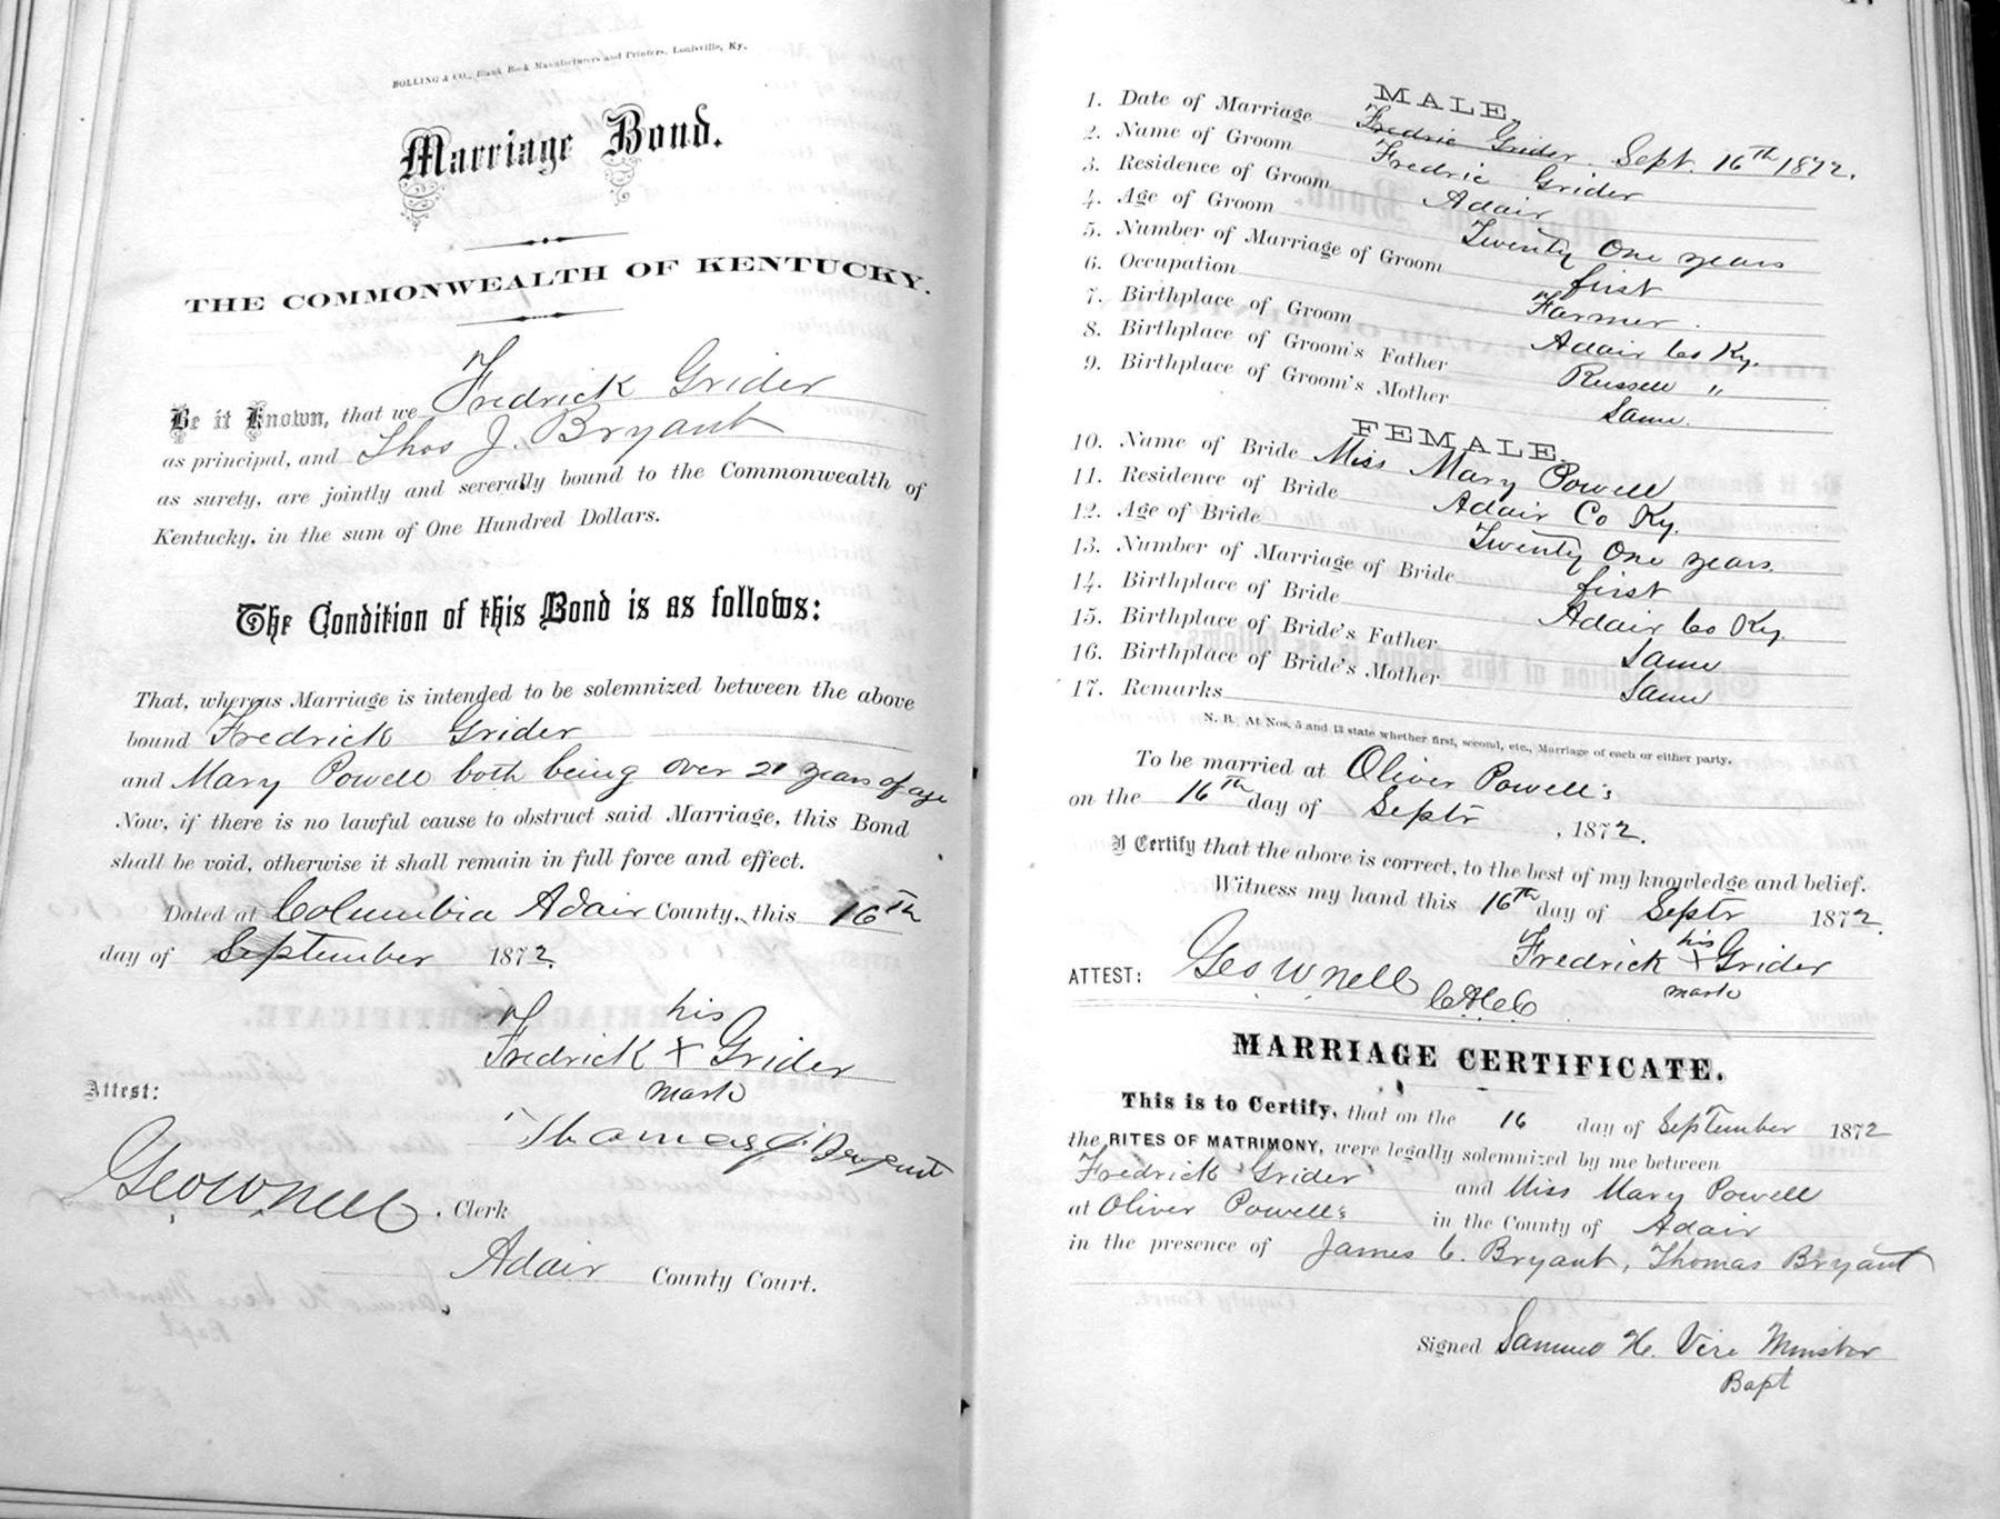 BOLLING & CO., Blank Book Manufacturers and Printers, Louisville, Ky.
Marriage Bond.
THE COMMONWEALTH OF KENTUCKY.
Be it Known, that we Fredrick Grider
as principal, and Thos J. Bryant
as surety, are jointly and severally bound to the Commonwealth of
Kentucky, in the sum of One Hundred Dollars.
The Condition of this Bond is as follows:
That, whereas Marriage is intended to be solemnized between the above
bound Fredrick Grider
and Mary Powell both being over 21 years of age
Now, if there is no lawful cause to obstruct said Marriage, this Bond
shall be void, otherwise it shall remain in full force and effect.
Dated at Columbia Adair County, this 16th
day of September 1872.
his
Fredrick X Grider
mark
Attest:
Thomas J. Bryant
Geo W Nell, Clerk
Adair County Court.
MALE.
1. Date of Marriage Fredric Grider. Sept. 16th 1872.
2. Name of Groom Fredric Grider
3. Residence of Groom Adair
4. Age of Groom Twenty One years
5. Number of Marriage of Groom first
6. Occupation Farmer.
7. Birthplace of Groom Adair Co Ky.
8. Birthplace of Groom's Father Russell "
9. Birthplace of Groom's Mother Same.
FEMALE.
10. Name of Bride Miss Mary Powell
11. Residence of Bride Adair Co Ky.
12. Age of Bride Twenty One years.
13. Number of Marriage of Bride first
14. Birthplace of Bride Adair Co Ky.
15. Birthplace of Bride's Father Same
16. Birthplace of Bride's Mother Same
17. Remarks
N. B. At Nos. 5 and 13 state whether first, second, etc., Marriage of each or either party.
To be married at Oliver Powell's
on the 16th day of Septr, 1872.
I Certify that the above is correct, to the best of my knowledge and belief.
Witness my hand this 16th day of Septr 1872.
his
Fredrick X Grider
mark
ATTEST: Geo W Nell
MARRIAGE CERTIFICATE.
This is to Certify, that on the 16 day of September 1872
the RITES OF MATRIMONY, were legally solemnized by me between
Fredrick Grider and Miss Mary Powell
at Oliver Powell's in the County of Adair
in the presence of James C. Bryant, Thomas Bryant
Signed Samuel H. Vire Minister
Bapt